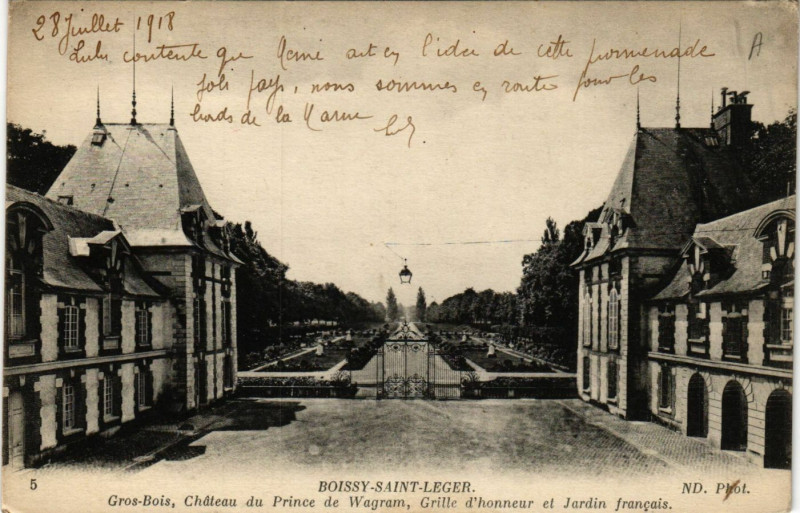 28 Juillet 1918
Lulu contente que Rémi ait eu l'idée de cette promenade
Joli pays, nous sommes en route pour les
bords de la Marne
A
5
BOISSY-SAINT-LEGER.
ND. Phot.
Gros-Bois, Château du Prince de Wagram, Grille d'honneur et Jardin français.